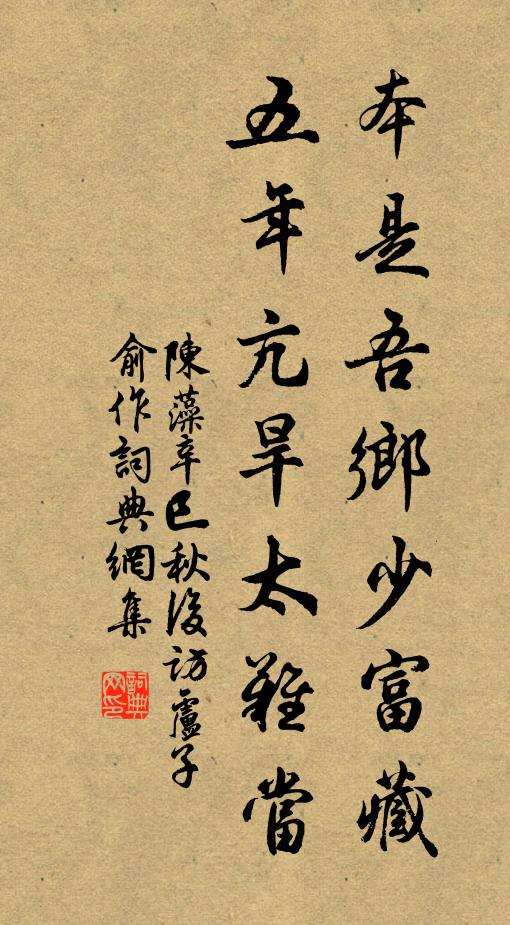 本是吾鄉少富藏
五年亢旱太難當
陳藻辛巳秋後訪盧子
俞作詞典網集
詞典網印